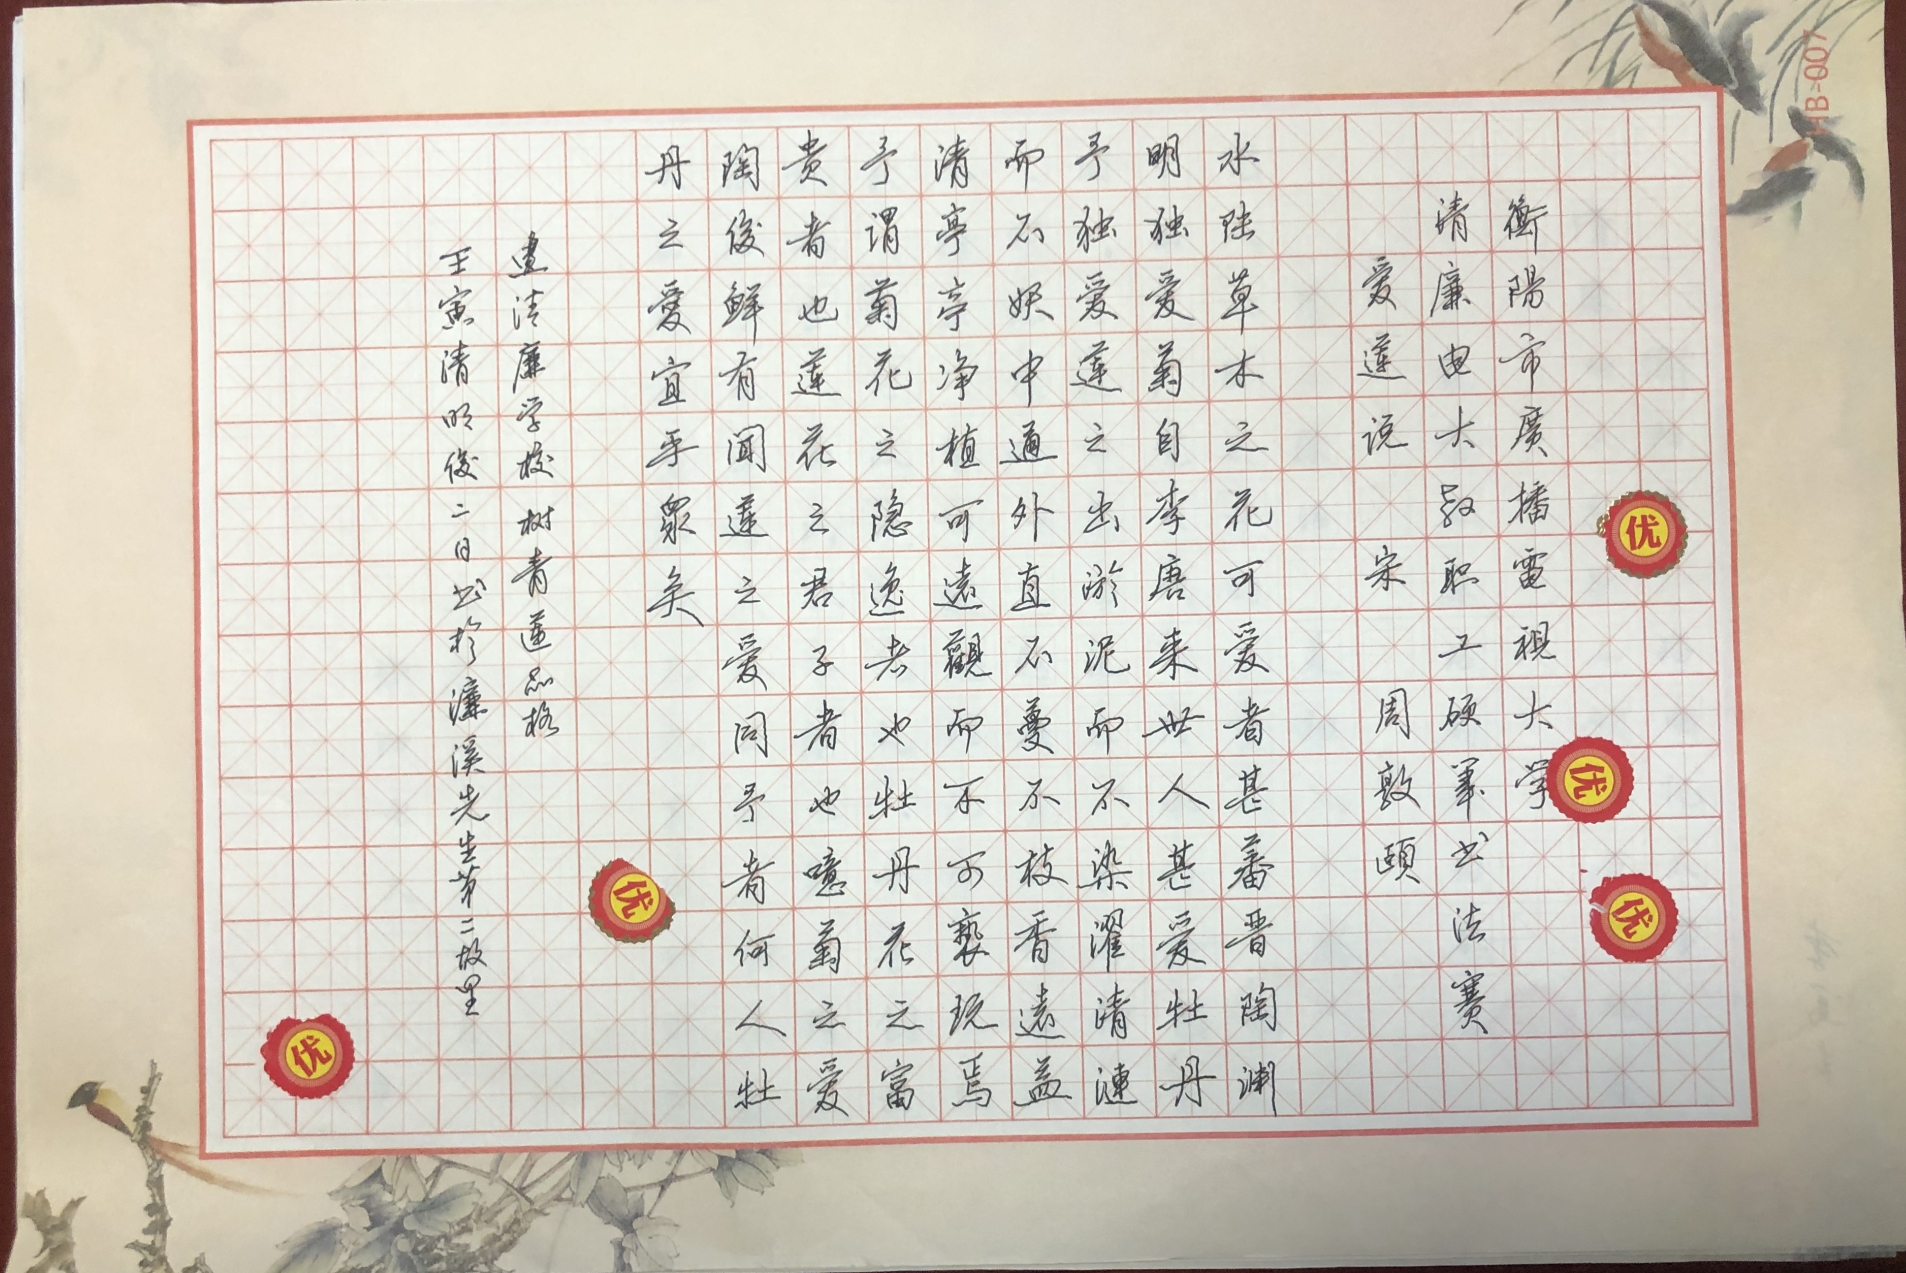 HB-007
衡陽市廣播電視大学
清廉电大教职工硬筆书法赛
爱蓮说 宋 周敦颐
水陆草木之花可爱者甚蕃晋陶渊
明独爱菊自李唐来世人甚爱牡丹
予独爱蓮之出淤泥而不染濯清漣
而不妖中通外直不蔓不枝香遠益
清亭亭净植可遠觀而不可褻玩焉
予谓菊花之隐逸者也牡丹花之富
贵者也蓮花之君子者也噫菊之爱
陶後鲜有闻蓮之爱同予者何人牡
丹之爱宜乎眾矣
建清廉学校树青蓮品格
壬寅清明後二日书於濂溪先生第二故里
优
优
优
优
优